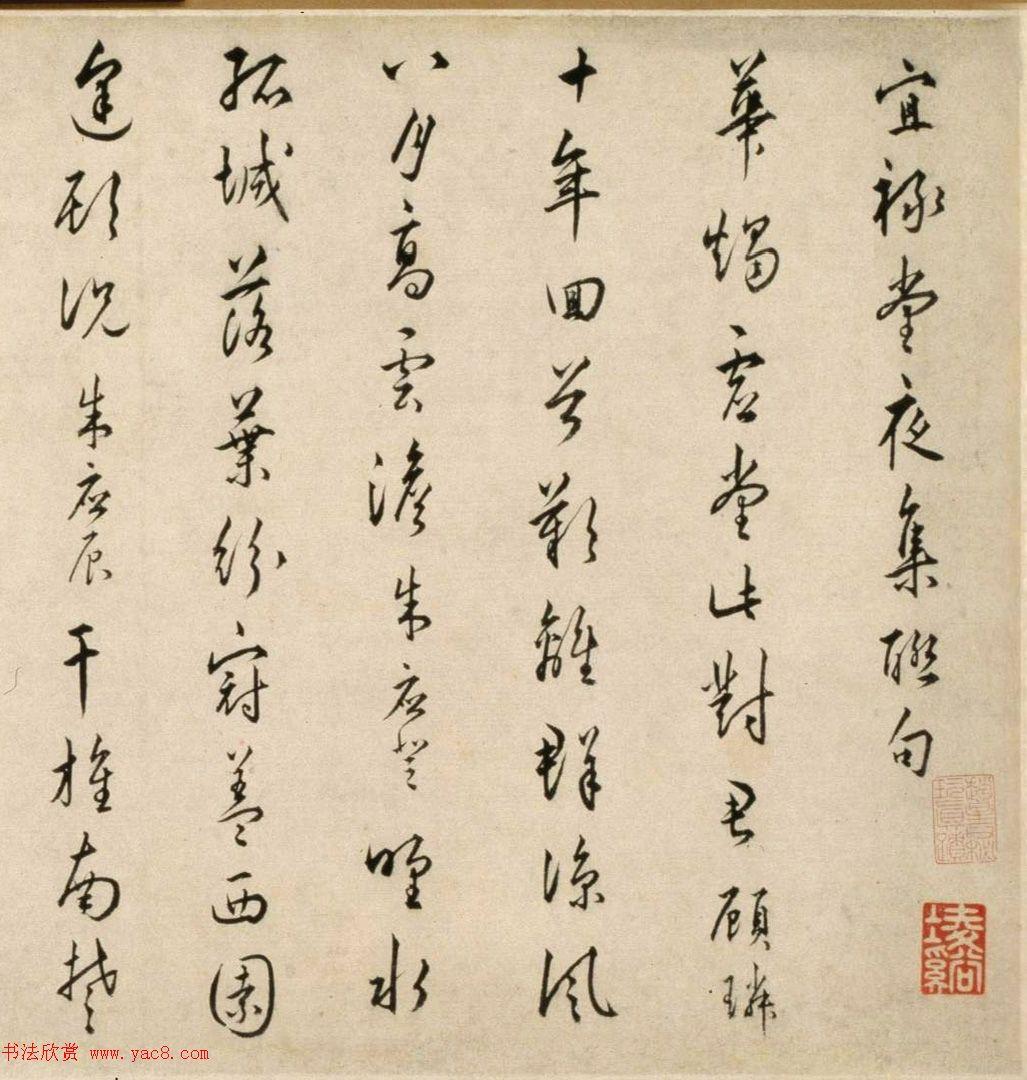 宜祿堂夜集聯句
華燭虛堂此對君顧璘
十年回首歎離群涼風
八月高雲澹朱應登野水
孤城落葉紛冠蓋西園
逢顧況朱應辰干旌南楚
书法欣赏 www.yac8.com